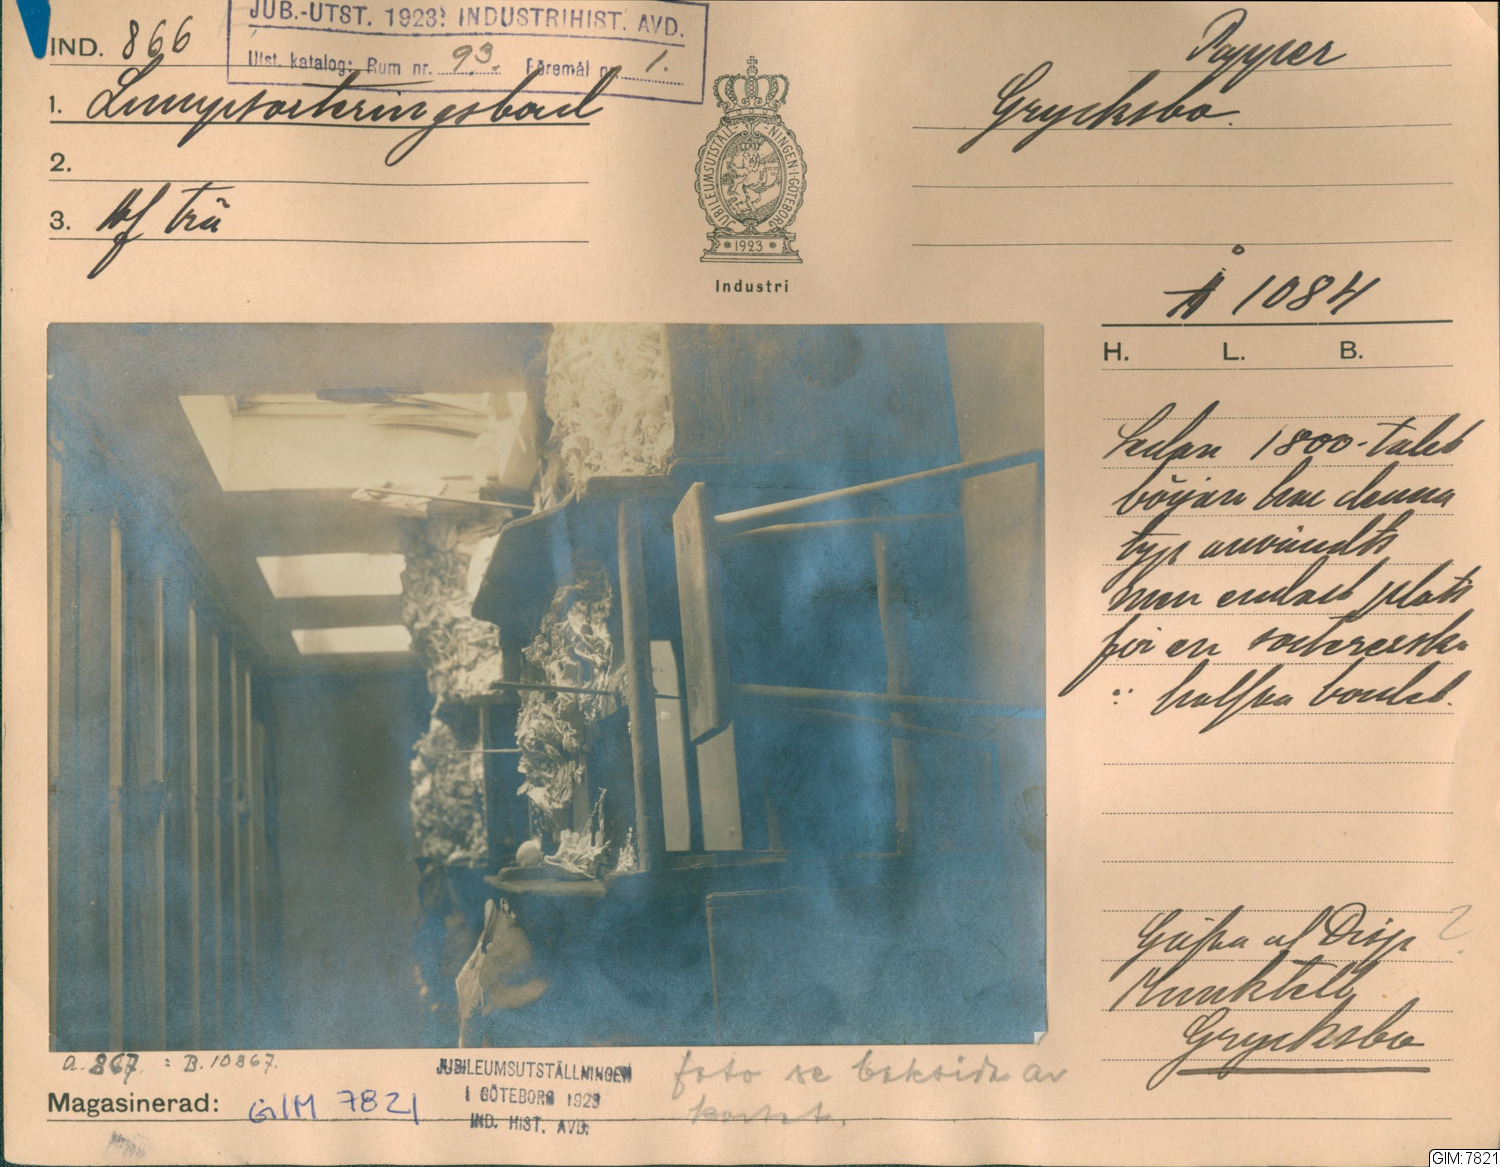 IND. 866
JUB.-UTST. 1923: INDUSTRIHIST. AVD.
Utst. katalog: Rum nr. 93. Föremål nr. 1.
1. Lumpsorteringsbord
2.
3. Af trä
JUBILEUMSUTSTÄLLNINGEN I GÖTEBORG
1923
Industri
Papper
Grycksbo.
Å 1084
H. L. B.
Sedan 1800-talets
början har denna
typ användts
men endast plats
för en sortererska
halfva bordet.
Gåfva af Disp ?
Munktell
Grycksbo
a. 867. : B.10867.
Magasinerad: GIM 7821
JUBILEUMSUTSTÄLLNINGEN
I GÖTEBORG 1923
IND. HIST. AVD.
foto se baksidan av
kortet.
GIM:7821